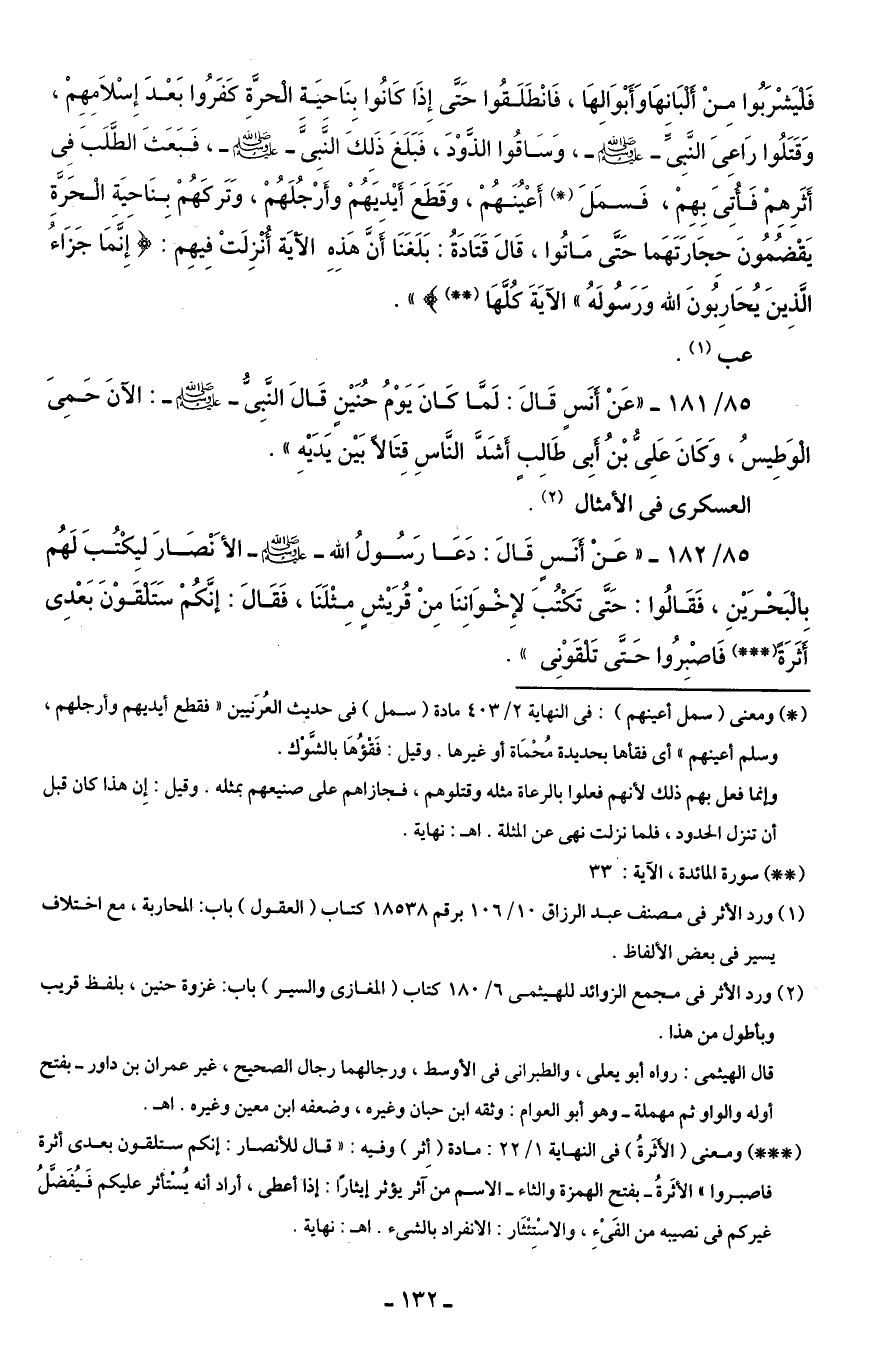 فَلْيَشْرَبُوا مِنْ أَلْبَانِهَاوَأَبْوَالِهَا ، فَانْطَلَقُوا حَتَّى إِذَا كَانُوا بِنَاحِيَةِ الْحرَّةِ كَفَرُوا بَعْدَ إِسْلاَمِهِمْ ،
وَقَتَلُوا رَاعِىَ النَّبِىِّ ـ ﷺ ـ، وَسَاقُوا الذَّوْدَ ، فَبَلَغَ ذَلِكَ النَّبِىَّ ـ ﷺ ـ، فَبَعَثَ الطَّلَبَ فِى
أَثَرِهِمْ فَأُتِىَ بِهِمْ ، فَسَمَلَ (*) أَعْيُنَهُمْ ، وَقَطَعَ أَيْدِيَهُمْ وأَرْجُلَهُمْ ، وَتَركَهُمْ بِنَاحِيَةِ الْحرَّةِ
يَقْضُمُونَ حِجارَتَهَما حَتَّى مَاتُوا ، قَالَ قَتَادَةُ : بَلَغَنَا أَنَّ هَذِهِ الآيَةَ أُنْزِلَتْ فِيهِم : ﴿ إِنَّمَا جَزَاءُ
الَّذِينَ يُحَارِبُونَ الله وَرَسُولَهُ » الآيَةَ كُلَّهَا (**) ﴾ » .
عب (١) .
١٨١/٨٥ ـ «عَنْ أَنَسٍ قَالَ : لَمَّا كَانَ يَوْمُ حُنَيْنٍ قَالَ النَّبِىُّ ـ ﷺ ـ : الآنَ حَمِىَ
الْوَطِيسُ ، وَكَانَ عَلِىُّ بْنُ أَبِى طَالِبٍ أَشَدَّ النَّاسِ قِتَالاً بَيْن يَدَيْهِ » .
العسكرى فى الأمثال (٢) .
١٨٢/٨٥ ـ « عَنْ أَنَسٍ قَالَ : دَعَا رَسُولُ الله ـ ﷺ ـ الأَنْصَارَ لِيكْتُبَ لَهُم
بِالْبَحْرَيْنِ ، فَقَالُوا : حَتَّى تَكْتُبَ لإِخْوَانِنَا مِنْ قُرَيْشٍ مِثْلَنَا ، فَقَالَ : إِنَّكُمْ سَتَلْقَوْنَ بَعْدِى
أَثَرَةً(***) فَاصْبِرُوا حَتَّى تَلْقَوْنِى » .
(*) ومعنى ( سمل أعينهم ) : فى النهاية ٤٠٣/٢ مادة ( سمل ) فى حديث العُرَنيين « فقطع أيديهم وأرجلهم ،
وسلم أعينهم » أى فقأها بحديدة مُحْمَاة أو غيرها . وقيل : فَقْؤُهَا بالشَّوْك .
وإنما فعل بهم ذلك لأنهم فعلوا بالرعاة مثله وقتلوهم ، فجازاهم على صنيعهم بمثله . وقيل : إن هذا كان قبل
أن تنزل الحدود ، فلما نزلت نهى عن المثلة . اهـ : نهاية .
(**) سورة المائدة ، الآية : ٣٣
(١) ورد الأثر فى مصنف عبد الرزاق ١٠٦/١٠ برقم ١٨٥٣٨ كتاب ( العقول ) باب: المحاربة ، مع اختلاف
يسير فى بعض الألفاظ .
(٢) ورد الأثر فى مجمع الزوائد للهيثمى ٦/ ١٨٠ كتاب ( المغازى والسير ) باب: غزوة حنين ، بلفظ قريب
وبأطول من هذا .
قال الهيثمى : رواه أبو يعلى ، والطبرانى فى الأوسط ، ورجالهما رجال الصحيح ، غير عمران بن داور ـ بفتح
أوله والواو ثم مهملة ـ وهو أبو العوام : وثقه ابن حبان وغيره ، وضعفه ابن معين وغيره . اهـ .
(***) ومعنى ( الأَثَرةُ ) فى النهاية ٢٢/١ : مادة ( أثر ) وفيه : « قال للأنصار : إنكم ستلقون بعدى أثرة
فاصبروا » الأثرةُ ـ بفتح الهمزة والثاء ـ الاسم من آثر يؤثر إيثارًا : إذا أعطى ، أراد أنه يُسْتأثر عليكم فَيُفَضَّلُ
غيركم فى نصيبه من الفَىْءِ ، والاسْتِئْثَار : الانفراد بالشىء . اهـ : نهاية .
ـ ١٣٢ ـ